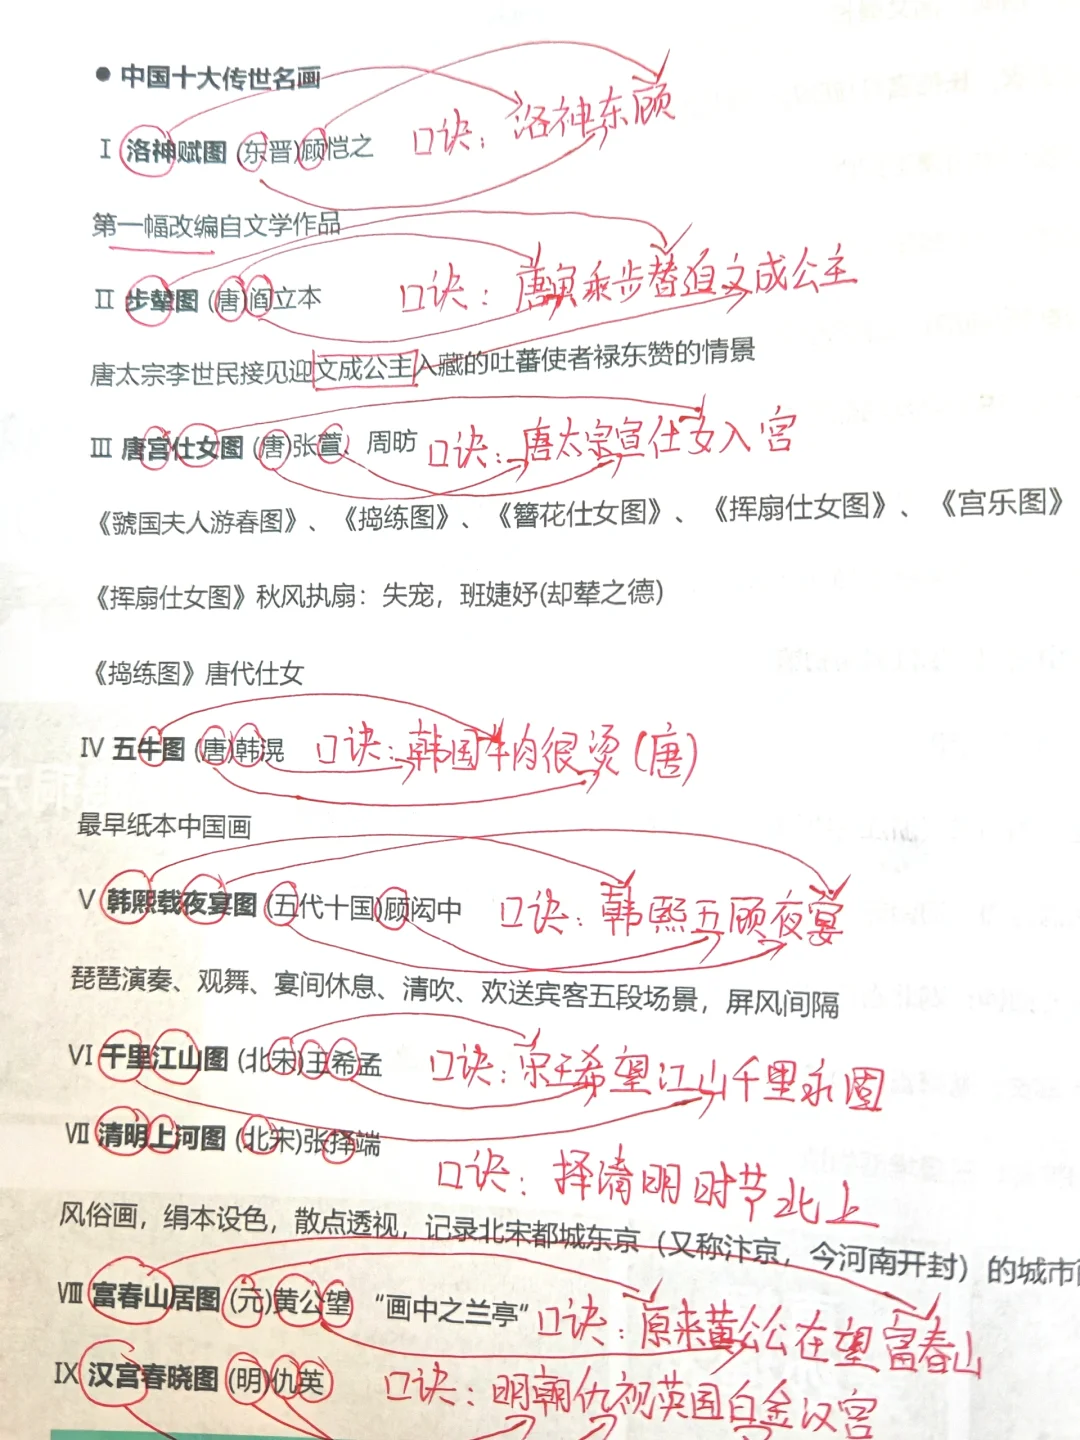 ● 中国十大传世名画
Ⅰ 洛神赋图 (东晋)顾恺之 口诀：洛神东顾
第一幅改编自文学作品
Ⅱ 步辇图 (唐)阎立本 口诀：唐寅乘步替迫文成公主
唐太宗李世民接见迎文成公主入藏的吐蕃使者禄东赞的情景
Ⅲ 唐宫仕女图 (唐)张萱、周昉 口诀：唐太宗宣仕女入宫
《虢国夫人游春图》、《捣练图》、《簪花仕女图》、《挥扇仕女图》、《宫乐图》
《挥扇仕女图》秋风执扇：失宠，班婕妤(却辇之德)
《捣练图》唐代仕女
Ⅳ 五牛图 (唐)韩滉 口诀：韩国牛肉很烫(唐)
最早纸本中国画
Ⅴ 韩熙载夜宴图 (五代十国)顾闳中 口诀：韩熙五顾夜宴
琵琶演奏、观舞、宴间休息、清吹、欢送宾客五段场景，屏风间隔
Ⅵ 千里江山图 (北宋)王希孟 口诀：宋王希望江山千里永固
Ⅶ 清明上河图 (北宋)张择端 口诀：择清明时节北上
风俗画，绢本设色，散点透视，记录北宋都城东京（又称汴京，今河南开封）的城市
Ⅷ 富春山居图 (元)黄公望 “画中之兰亭” 口诀：原来黄公公在望富春山
Ⅸ 汉宫春晓图 (明)仇英 口诀：明朝仇视英国白金汉宫